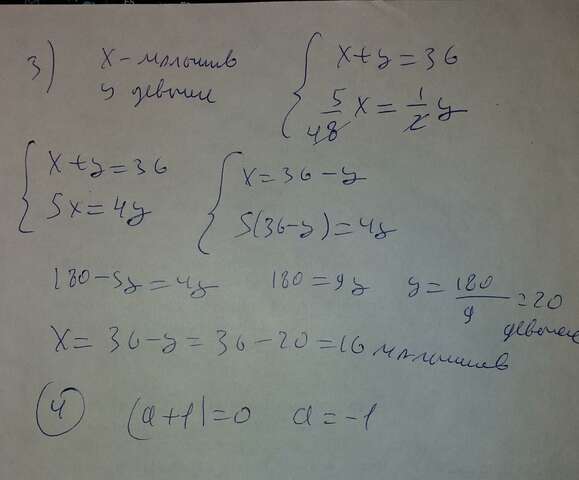 3) x - мальчиков { x + y = 36
y девочек { 5/48 x = 1/2 y
{ x + y = 36 { x = 36 - y
{ 5x = 4y { 5(36 - y) = 4y
180 - 5y = 4y 180 = 9y y = 180/9 = 20 девочек
x = 36 - y = 36 - 20 = 16 мальчиков
4 |a + 1| = 0 a = -1